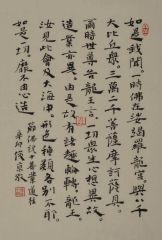 如是我聞一時佛在娑竭羅龍宮與八千
大比丘眾三萬二千菩薩摩訶薩俱
爾時世尊告龍王言一切眾生心想異故
造業亦異由是故有諸趣輪轉龍王
汝見此會及大海中形色種類各別不耶
如是一切靡不由心造
節佛說十善業道經